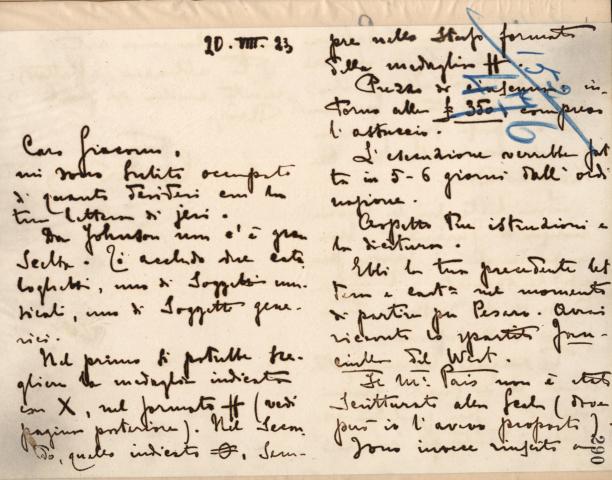 20. VIII. 23
Caro Giacomo,
mi sono subito occupato
di quanto desideri con la
tua lettera di jeri.
Da Johnson non c'è gran
scelta. Ti accludo due cata
loghetti, uno di Soggetti mu-
sicali, uno di Soggetti gene-
rici.
Nel primo si potrebbe sce-
gliere la medaglia indicata
con X, nel formato # (vedi
pagina posteriore). Nel Secon
do, quella indicata, sem-
pre nello Stesso formato
della medaglia #.
Prezzo di ciascuna in-
torno alle £ 350 compreso
l'astuccio.
L'esecuzione verrebbe fat
ta in 5-6 giorni dall'ordi
nazione.
Aspetto tue istruzioni e
la dicitura.
Ebbi la tua precedente let
tera e cart.na nel momento
di partire per Pesaro. Avrai
ricevuto lo spartito Fan-
ciulla del West.
Se Mr. Pais non è stato
scritturato alla Scala (dove
però io l'avevo proposto).
Sono invece riuscito a
290